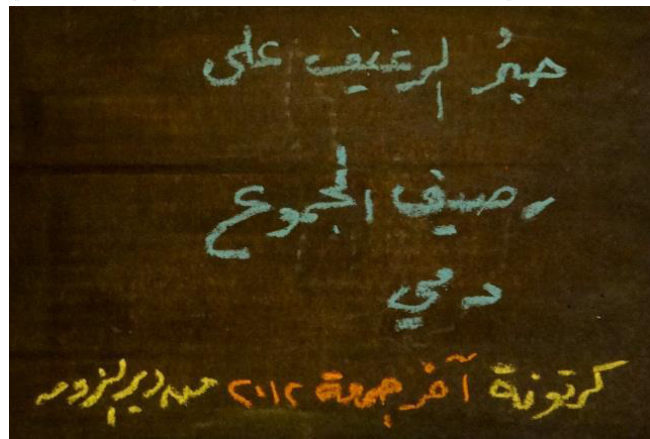 حبرُ الرغيف على
رصيف الجموع
دمي
كرتونة آخر جمعة ٢٠١٢ من ديرالزور